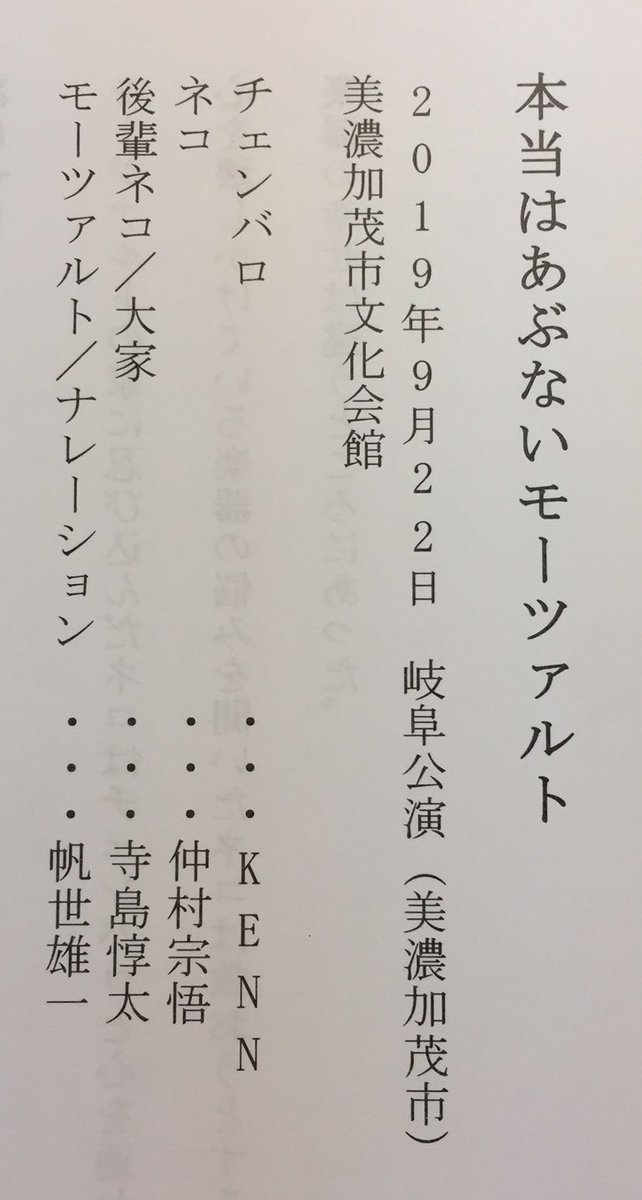 本当はあぶないモーツァルト
2019年9月22日　岐阜公演（美濃加茂市）
美濃加茂市文化会館
チェンバロ　・・・KENN
ネコ　・・・仲村宗悟
後輩ネコ／大家　・・・寺島惇太
モーツァルト／ナレーション　・・・帆世雄一